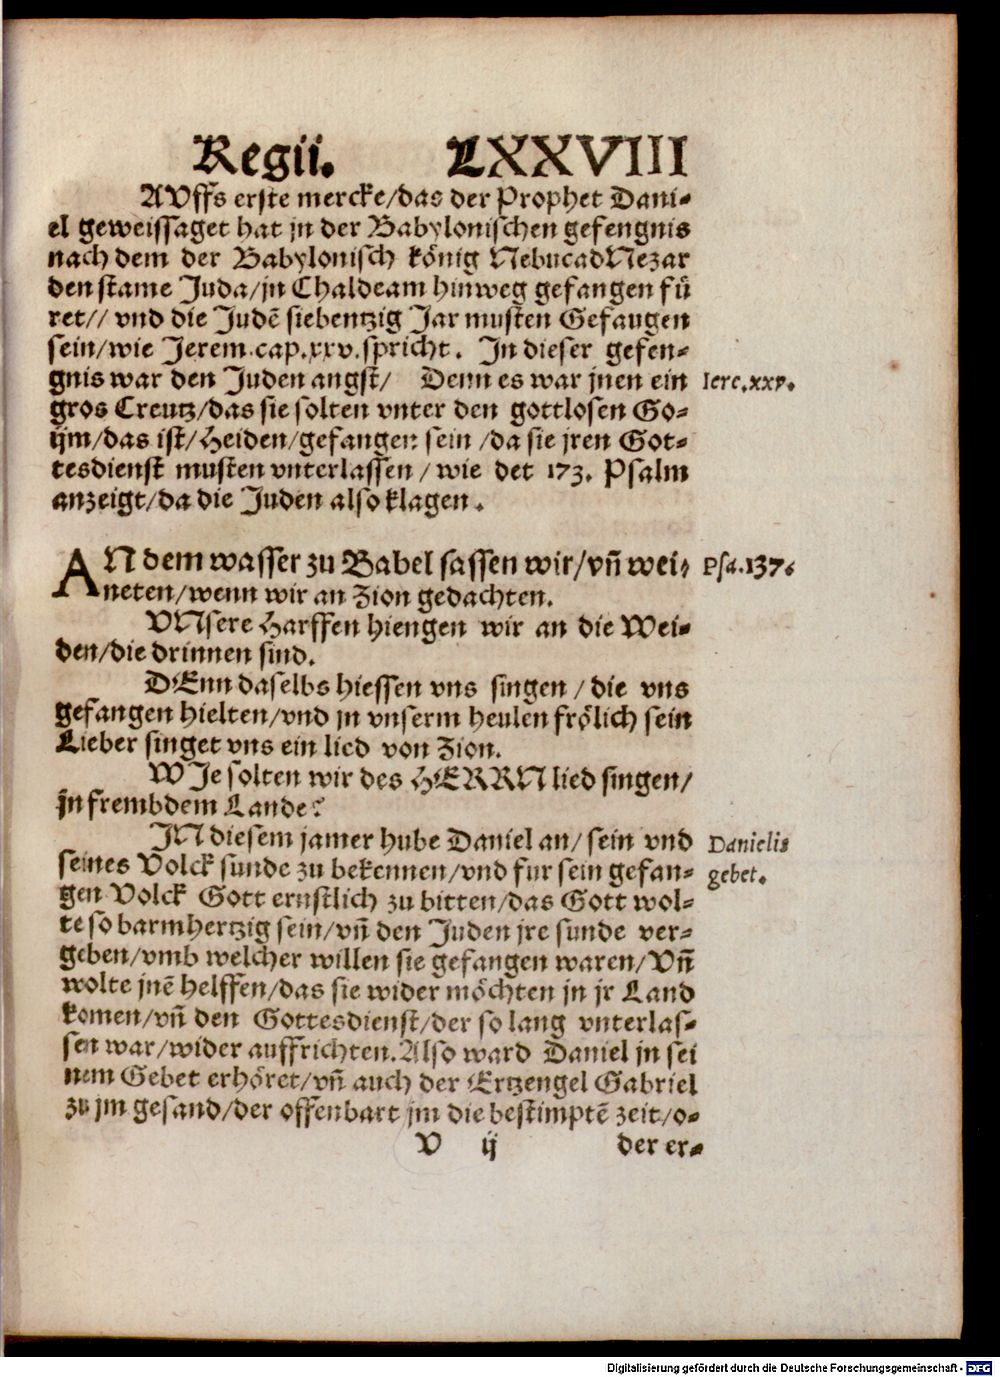 Regii. LXXVIII
AVffs erste mercke/das der Prophet Dani-
el geweissaget hat jn der Babylonischen gefengnis
nach dem der Babylonisch könig NebucadNezar
den stame Juda/jn Chaldeam hinweg gefangen fü
ret// vnd die Judē siebentzig Jar musten Gefangen
sein/wie Jerem.cap.xxv.spricht. In dieser gefen-
gnis war den Juden angst/ Denn es war jnen ein
Iere.xxv.
gros Creutz/das sie solten vnter den gottlosen Go-
ijm/das ist/Heiden/gefangen sein /da sie jren Got-
tesdienst musten vnterlassen / wie det 173. Psalm
anzeigt/da die Juden also klagen.
AN dem wasser zu Babel sassen wir/vñ wei-
Psa.137.
neten/wenn wir an Zion gedachten.
VNsere Harffen hiengen wir an die Wei-
den/die drinnen sind.
DEnn daselbs hiessen vns singen / die vns
gefangen hielten/vnd jn vnserm heulen frölich sein
Lieber singet vns ein lied von Zion.
WJe solten wir des HERRN lied singen/
jn frembdem Lande?
JN diesem jamer hube Daniel an/ sein vnd
Danielis
seines Volck sunde zu bekennen/vnd fur sein gefan-
gebet.
gen Volck Gott ernstlich zu bitten/das Gott wol-
te so barmhertzig sein/vñ den Juden jre sunde ver-
geben/vmb welcher willen sie gefangen waren/Vñ
wolte jnē helffen/das sie wider möchten jn jr Land
komen/vñ den Gottesdienst/der so lang vnterlas-
sen war/wider auffrichten.Also ward Daniel jn sei
nem Gebet erhöret/vñ auch der Ertzengel Gabriel
zu jm gesand/der offenbart jm die bestimptē zeit/o-
V ij der er-
Digitalisierung gefördert durch die Deutsche Forschungsgemeinschaft - DFG